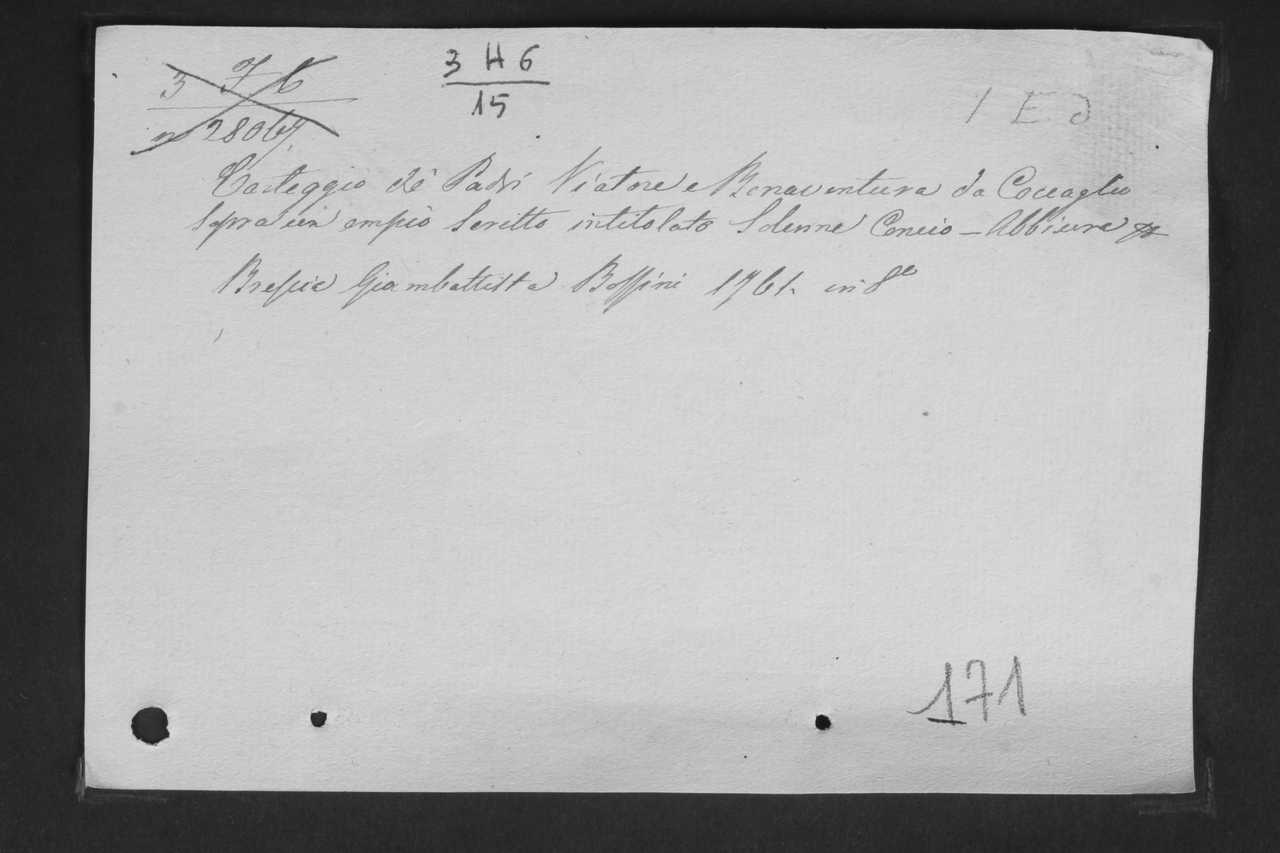 3 7 6
n 28067
3 H 6
15
1 E 2
Carteggio de' Padri Viatore e Bonaventura da Coccaglio
sopra un empio scritto intitolato Solenne Concio - Abbiura
Brescia Giambattista Bossini 1761. in 8º
171